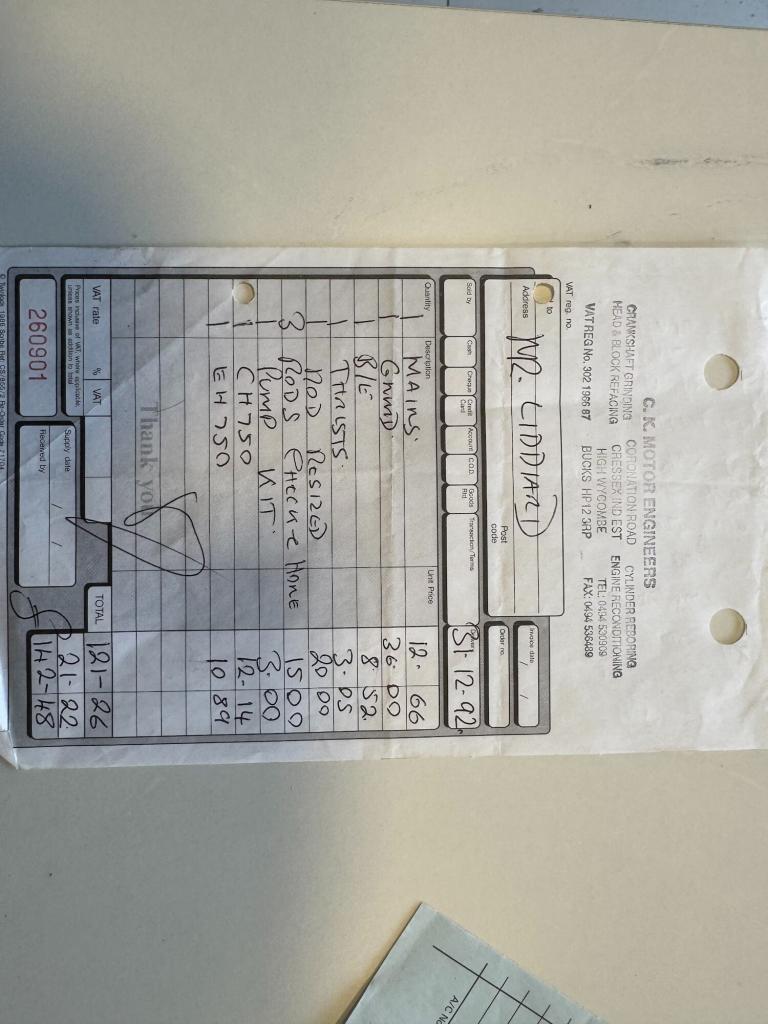 G. K. MOTOR ENGINEERS
CRANKSHAFT GRINDING CORONATION ROAD CYLINDER REBORING
HEAD & BLOCK REFACING CRESSEX IND EST ENGINE RECONDITIONING
HIGH WYCOMBE TEL: 0494 530909
VAT REG No. 302 1986 87 BUCKS HP12 3RP FAX: 0494 536489
VAT reg. no.
to MR. LIDDIARD
Address
Post code
Invoice date / /
Order no.
Sold by Cash Cheque Credit Card Account C.O.D. Goods Rtd Transaction/Terms
31-12-92
Quantity Description Unit Price
1 MAINS. 12. 66
1 GRIND. 36.00
1 B/E 8. 52
1 THRUSTS. 3.05
1 ROD RESIZED 20 00
3 RODS CHECK & HONE 15 00
1 PUMP KIT. 3.00
1 CH750 12-14
1 EH750 10 89
Thank you
VAT rate % VAT TOTAL 121-26
Prices inclusive of VAT, where applicable, unless shown as addition to total
21-22
Supply date / /
260901 Received by £ 142-48
© Twinlock 1989 Scribe Ref. CS/855/2 Re-Order Code 71704
A/C No